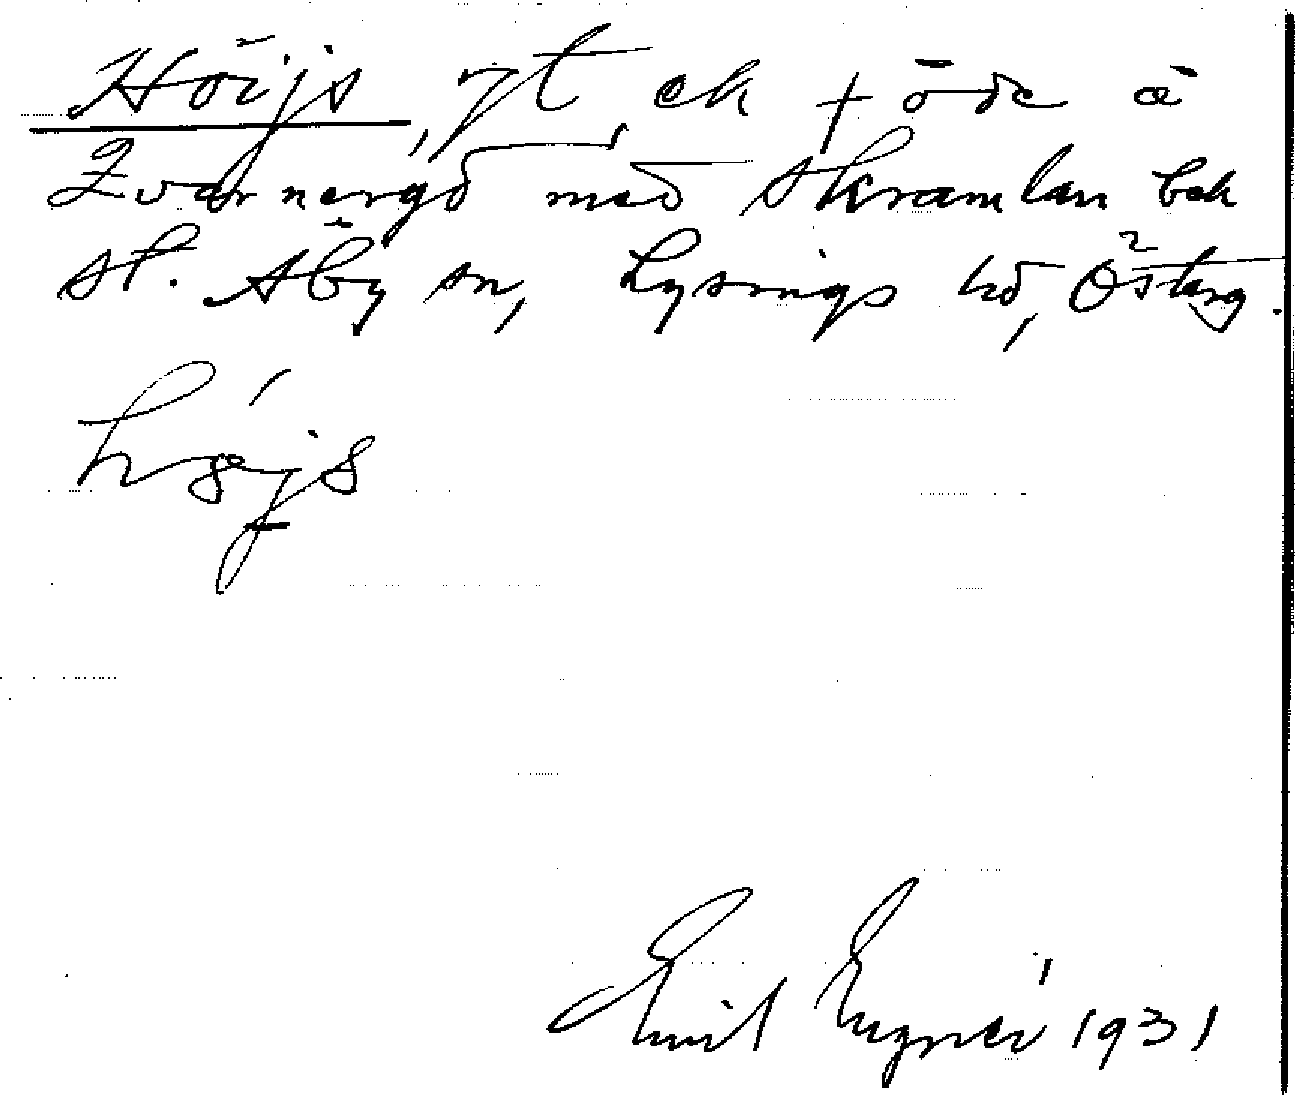 Höijs, yt ek + öde å
Kvarnergd med skramlan bek
st. Åby sn, Lysings hd, Österg.
højs
Emil Lugnér 1931